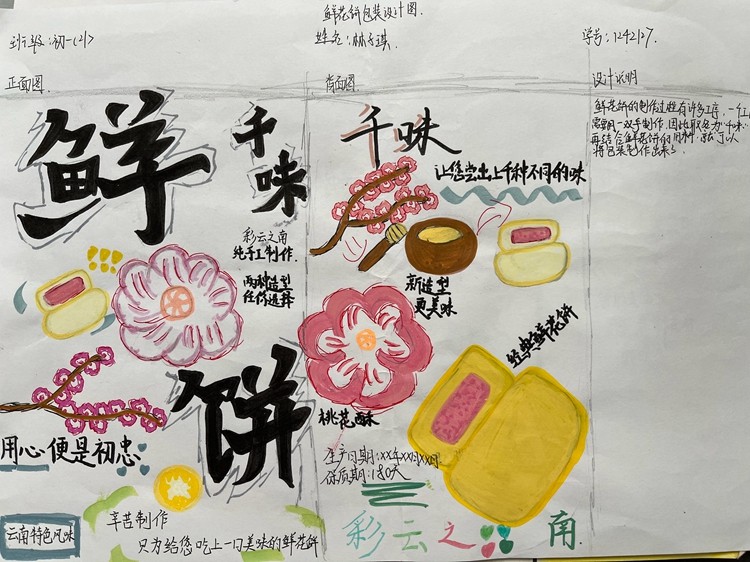 鲜花饼包装设计图.
班级:初一(2)
姓名:林子琪.
学号:1242127.
正面图.
背面图.
设计说明
鲜
千味
彩云之南
纯手工制作.
两种造型
任你选择
饼
用心便是初忠
云南特色风味
辛苦制作
只为给您吃上一口美味的鲜花饼
千味
让您尝出上千种不同的味
新造型
更美味
经典鲜花饼
桃花酥
生产日期:xx年xx月xx日
保质期:180天
彩云之南
鲜花饼的制作过程有许多工序,一
需要 一双手制作,因此取名为"千味"
再结合鲜花饼的 可以
将包装 制作出来